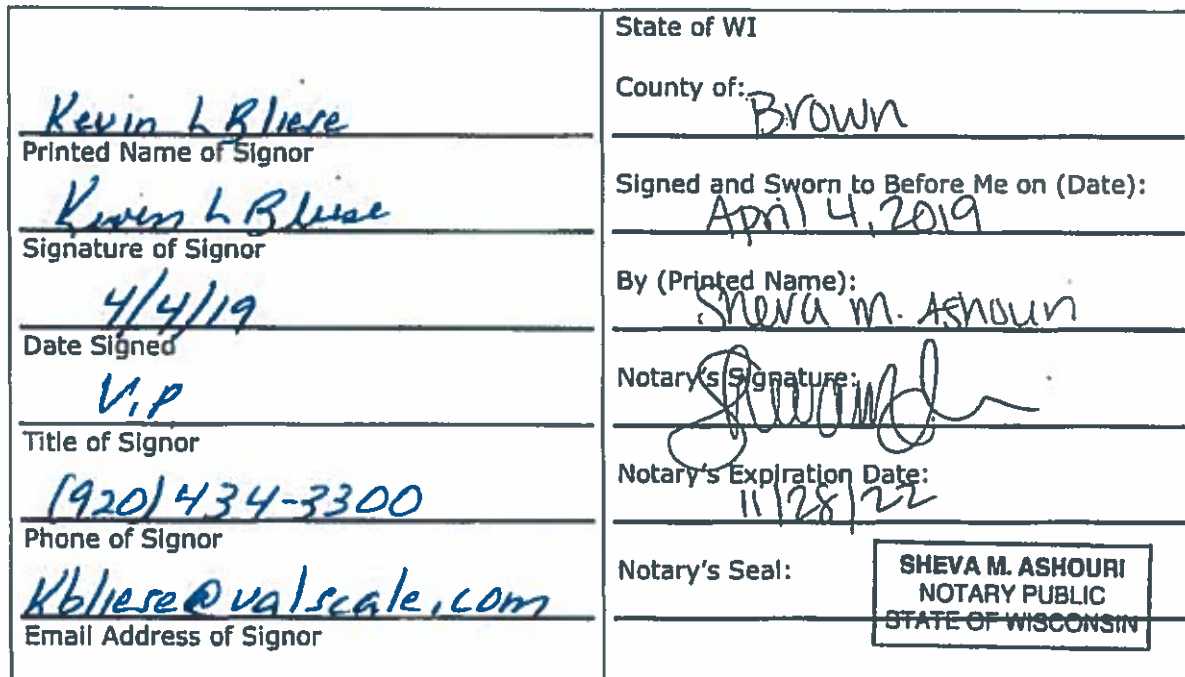 Kevin L Bliese
Printed Name of Signor
Kevin L Bliese
Signature of Signor
4/4/19
Date Signed
V.P
Title of Signor
(920) 434-3300
Phone of Signor
Kbliese@valscale.com
Email Address of Signor
State of WI
County of:
Brown
Signed and Sworn to Before Me on (Date):
April 4, 2019
By (Printed Name):
Sheva M. Ashouri
Notary's Signature:
Notary's Expiration Date:
11/28/22
Notary's Seal:
SHEVA M. ASHOURI
NOTARY PUBLIC
STATE OF WISCONSIN